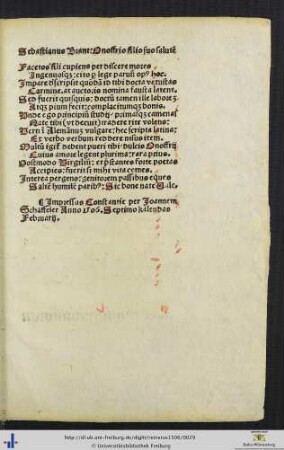 Sebastianus Brant: Onoffrio filio suo salutē
Facetos fili cupiens per discere mores
Ingenuasqꝫ: cito p lege paruū opꝰ hoc.
Impare dscripsit quōdā tibi docta vetustas
Carmine. at auctoris nomina fausta latent.
Sed fuerit quisquis: doctū tamen ille
Atqꝫ pium fecit: complacitumqꝫ bonis.
Unde ego principiū studij: primasqꝫ camenas
Nate tibi (vt decuit) tradere rite volens:
Verti Alemānus vulgare: hec scripta latina:
Et verbo verbum reddere nisus item.
Multū igit̄ debent pueri tibi dulcis Onoffri
Cuius amore legent plurima: rara prius.
Postmodo Virgiliū: prestantes forte poetas
Accipies: fuerit si mihi vita comes.
Interea pergens: genitorem passibus eques
Saltē humile paribꝰ: Sic bone nate Vale.
¶ Impressus Constantie per Joannem
Schaffeler Anno 1506. Septimo kalendas
Februarij.
http://dl.ub.uni-freiburg.de/diglit/reinerus1506/0029
© Universitätsbibliothek Freiburg